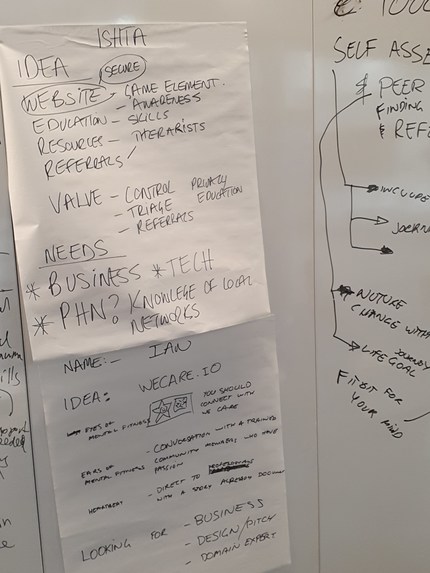 ISHTA
IDEA
SECURE
WEBSITE - GAME ELEMENT.
- AWARENESS
EDUCATION - SKILLS
RESOURCES - THERAPISTS
REFERRALS
VALUE - CONTROL PRIVACY
- TRIAGE EDUCATION
- REFERRALS
NEEDS
* BUSINESS * TECH
* PHN? KNOWLEGE OF LOCAL
NETWORKS
NAME:- IAN
IDEA: WECARE.IO
EYES OF
MENTAL FITNESS
YOU SHOULD
CONNECT WITH
WE CARE
EARS OF
MENTAL FITNESS
- CONVERSATION WITH A TRAINED
COMMUNITY MEMBERS WHO HAVE
PASSION
HEARTBEAT
- DIRECT TO
WITH A STORY ALREADY
LOOKING FOR - BUSINESS
- DESIGN/PITCH
- DOMAIN EXPERT
SELF ASSE
PEER
FINDING
REFE
INCLUDE
JOURN
FUTURE
CHANGE WITH
JOURNEY
LIFE GOAL
FITBIT FOR
YOUR MIND